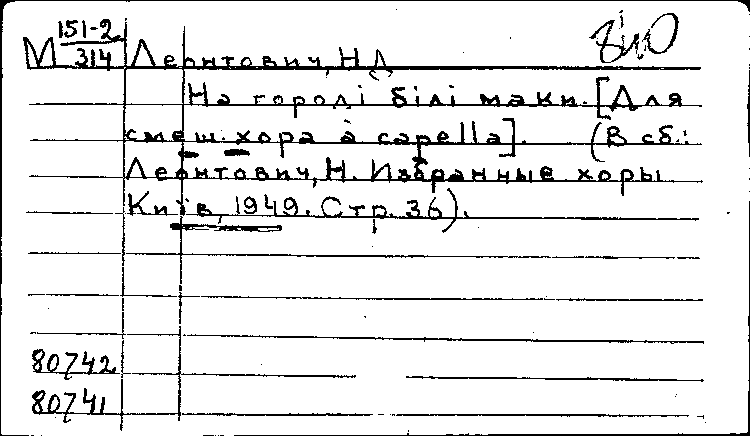 М 151-2
314
Леонтович, Н Д
На городі білі маки. [Для
смеш. хора à capella]. (В сб.:
Леонтович, Н. Избранные хоры
Київ, 1949. Стр. 36).
80742
80741